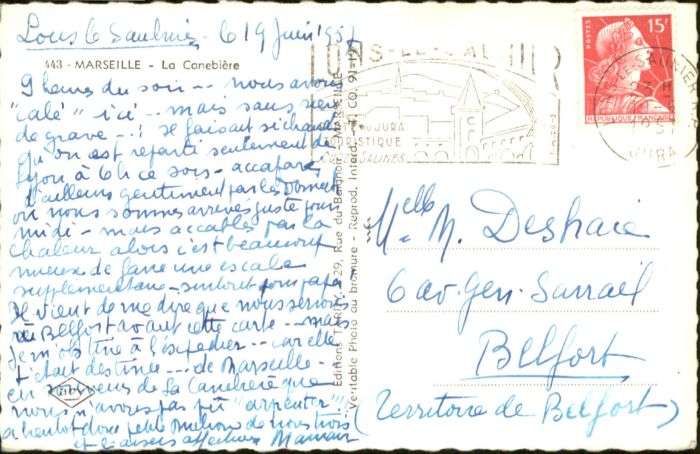 Lons le Saulnier - le 19 Juin 1957
443 - MARSEILLE - La Canebière
9 heures du soir -- nous avons
"calé" ici -- mais sans rien
de grave --! Il faisait si chaud
qu'on est reparti seulement de
Lyon à 6h ce soir - accaparés
d'ailleurs gentiment par les
où nous sommes arrivés juste pour
midi - mais accablés par la
chaleur alors c'est beaucoup
mieux de faire une escale
supplémentaire - surtout pour papa
Il vient de me dire que nous serions
à Belfort avant cette carte --- mais
je m'obstine à l'expédier -- car elle
t'était destinée --- de Marseille -
en de la Canebière que
nous n'avons pas pu "arpenter"!!
à bientôt donc petite de nous trois
et baisers affectueux Maman
Editions TARDY, 29, Rue du Baignoir, MARSEILLE
Véritable Photo au bromure - Reprod. Interd.
LONS-LE-SAUNIER
JURA
TOURISTIQUE
SALINES
POSTES
15F
REPUBLIQUE FRANÇAISE
LONS-LE-SAUNIER
JURA
Melle M. Deshaie
6 av. Gen. Sarrail
Belfort
(Territoire de Belfort)